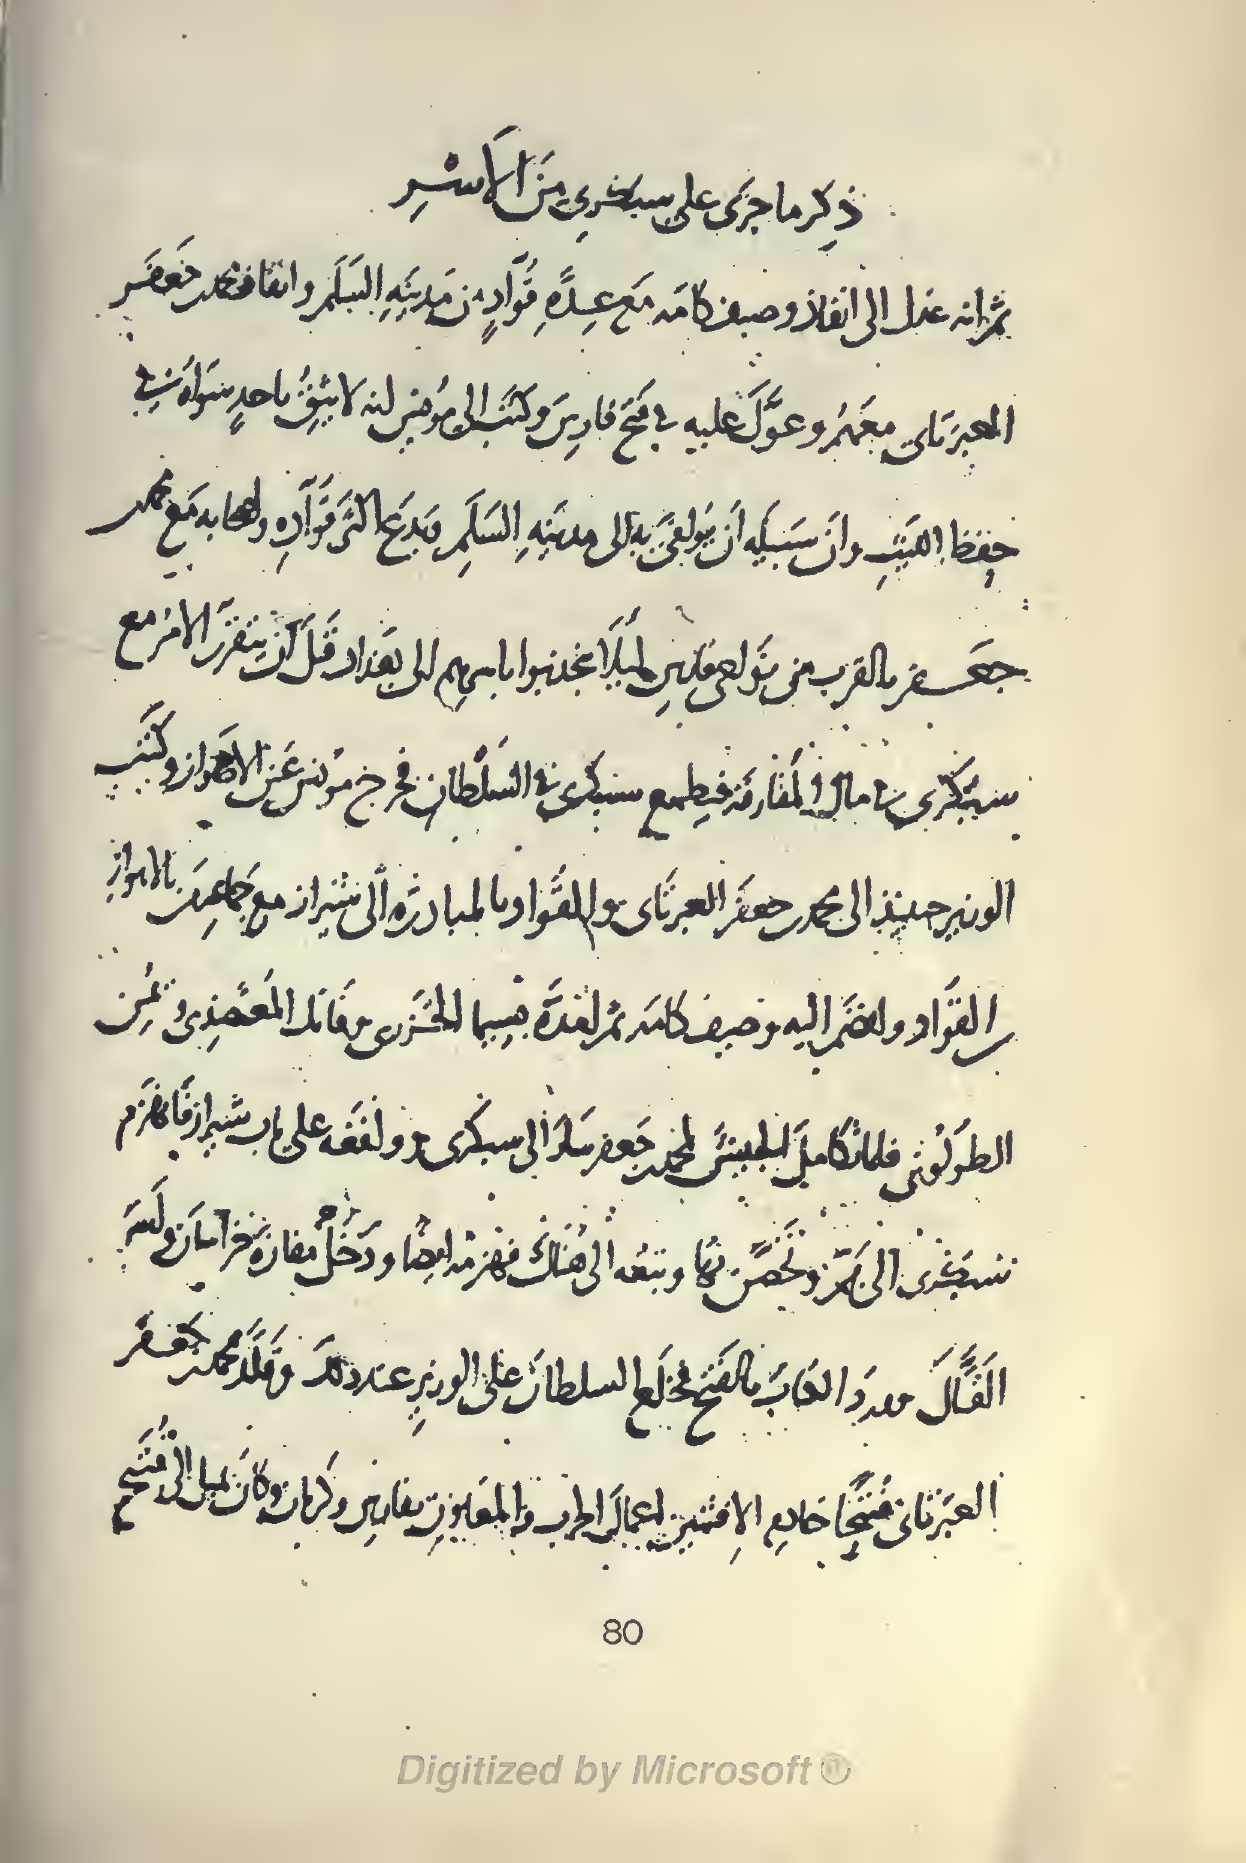 ذكر ما جرى على سبكرى من الأسر
ثم انه عدل الى انفاذ وصيف كامه مع عدة قواد من مدينة السلم وانفاذ محمد بن جعفر
العبرتاى معهم وعول عليه فى فتح فارس وكتب الى مونس انه لا يثق باحد سواه فى
حفظ الليث وان سبيله ان يوافى به الى مدينة السلم ويدع اكثر قواده واصحابه مع محمد بن
جعفر بالقرب من نواحى فارس ليلا ينجذبوا باسرهم الى بغداد قبل ان يتقرر الامر مع
سبكرى على مال المفارقة فيطمع سبكرى فى السلطان فخرج مونس عن الاهواز وكتب
الوزير حينئذ الى محمد بن جعفر العبرتاى والقواد بالمبادرة الى شيراز مع جماعة من بالاهواز
من القواد وانضم اليه وصيف كامه ثم انفذه سيما الخزرى وفاتك المعتضدى ويمن
الطولونى فلما تكامل الجيش لمحمد بن جعفر سار الى سبكرى وواقعه على باب شيراز فانهزم
سبكرى الى بم وتحصن بها وتبعه الى هناك فهزمه ايضا ودخل مفازة خراسان واسر
القتال وورد الكتاب بالفتح فخلع السلطان على الوزير عند ذلك وقلد محمد بن جعفر
العبرتاى فتحا خادم الافشين اعمال الحرب والمعاون بفارس وكرمان وكان يميل الى فتح
80
Digitized by Microsoft ®